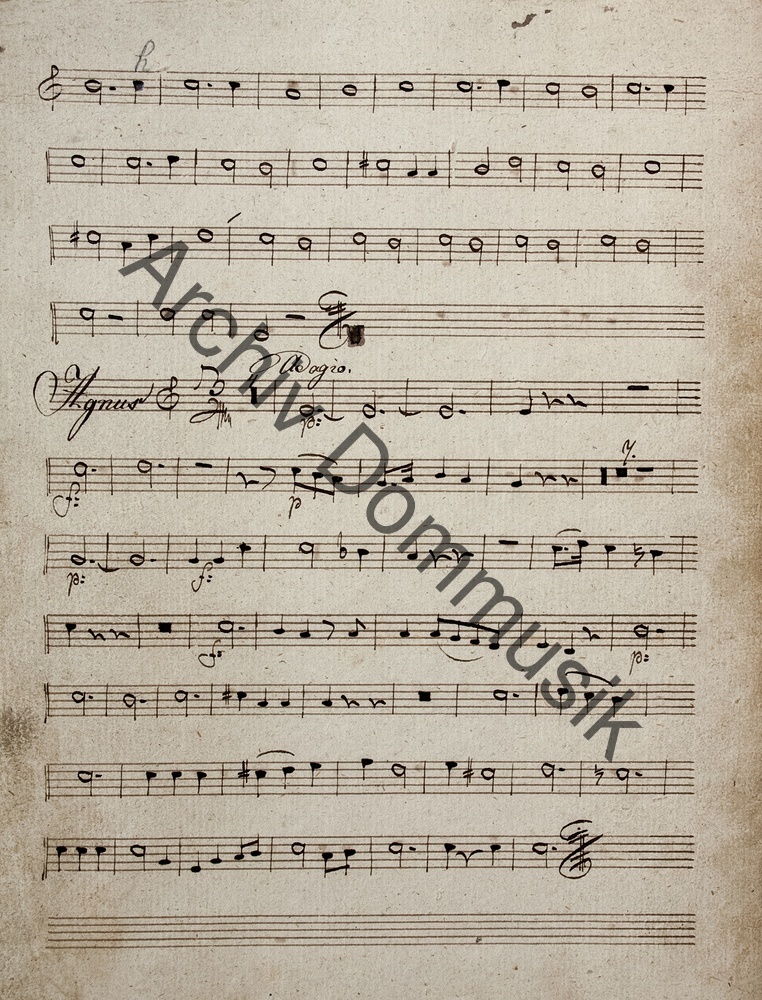 h
Adagio.
Agnus
p:
f:
p
7.
p:
f:
f:
p:
Archiv Dommusik